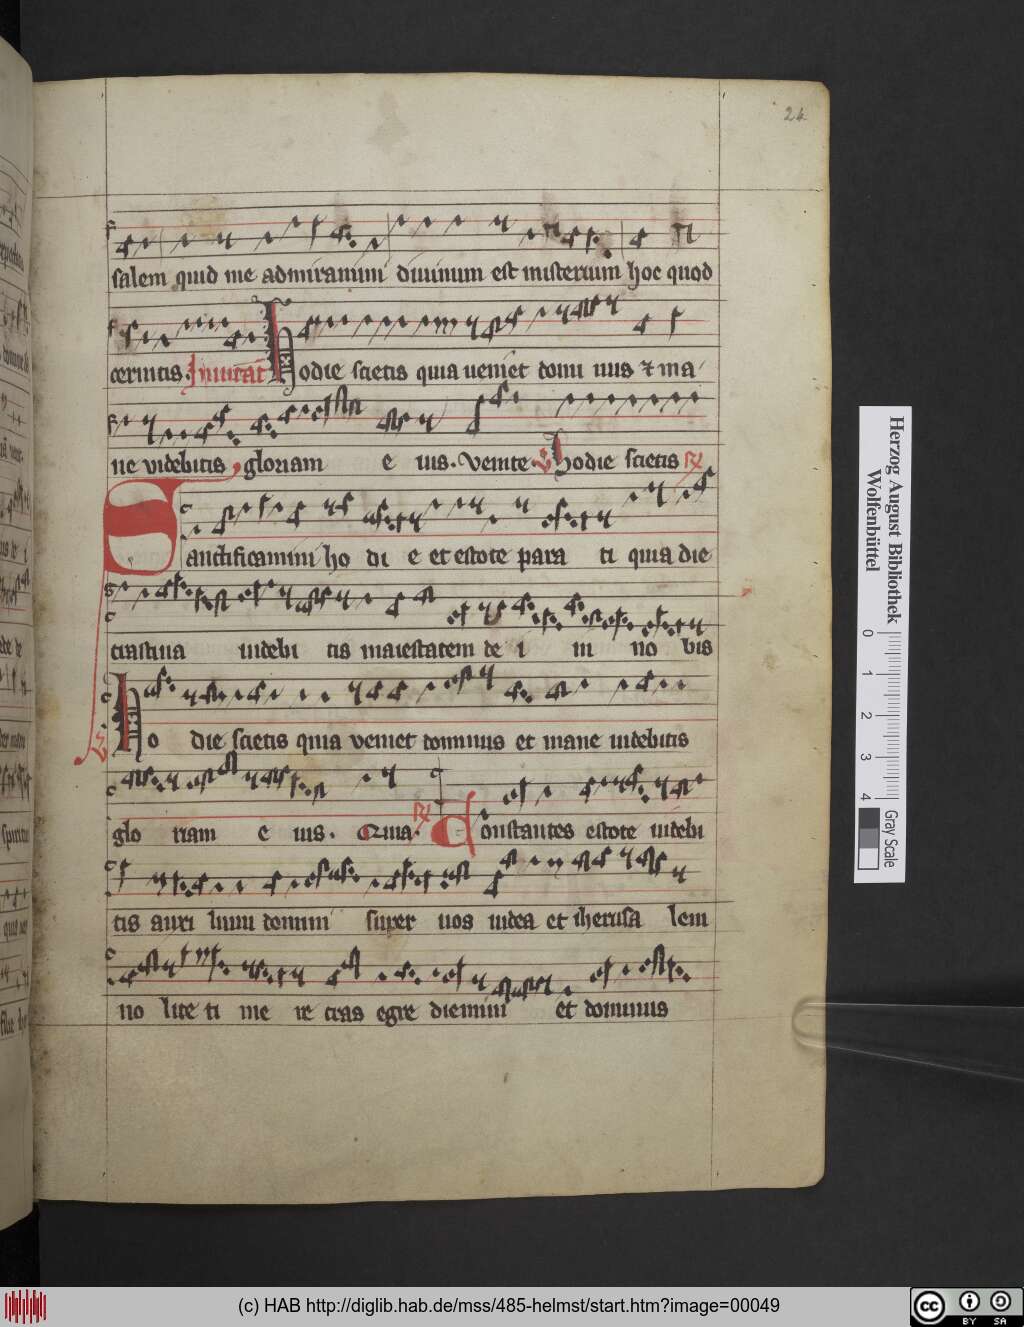 24
salem quid me admiramini diuinum est misterium hoc quod
cernitis. Inuitat Hodie scietis quia ueniet domi nus et ma
ne videbitis gloriam e ius. Venite. Hodie scietis
Sanctificamini ho di e et estote para ti quia die
crastina uidebi tis maiestatem de i in no bis
Ho die scietis quia veniet dominus et mane uidebitis
glo riam e ius. Quia. Constantes estote uidebi
tis auxi lium domini super uos iudea et iherusa lem
no lite ti me re cras egre diemini et dominus
Herzog August Bibliothek
Wolfenbüttel
0 1 2 3 4 Gray Scale
(c) HAB http://diglib.hab.de/mss/485-helmst/start.htm?image=00049
cc BY SA